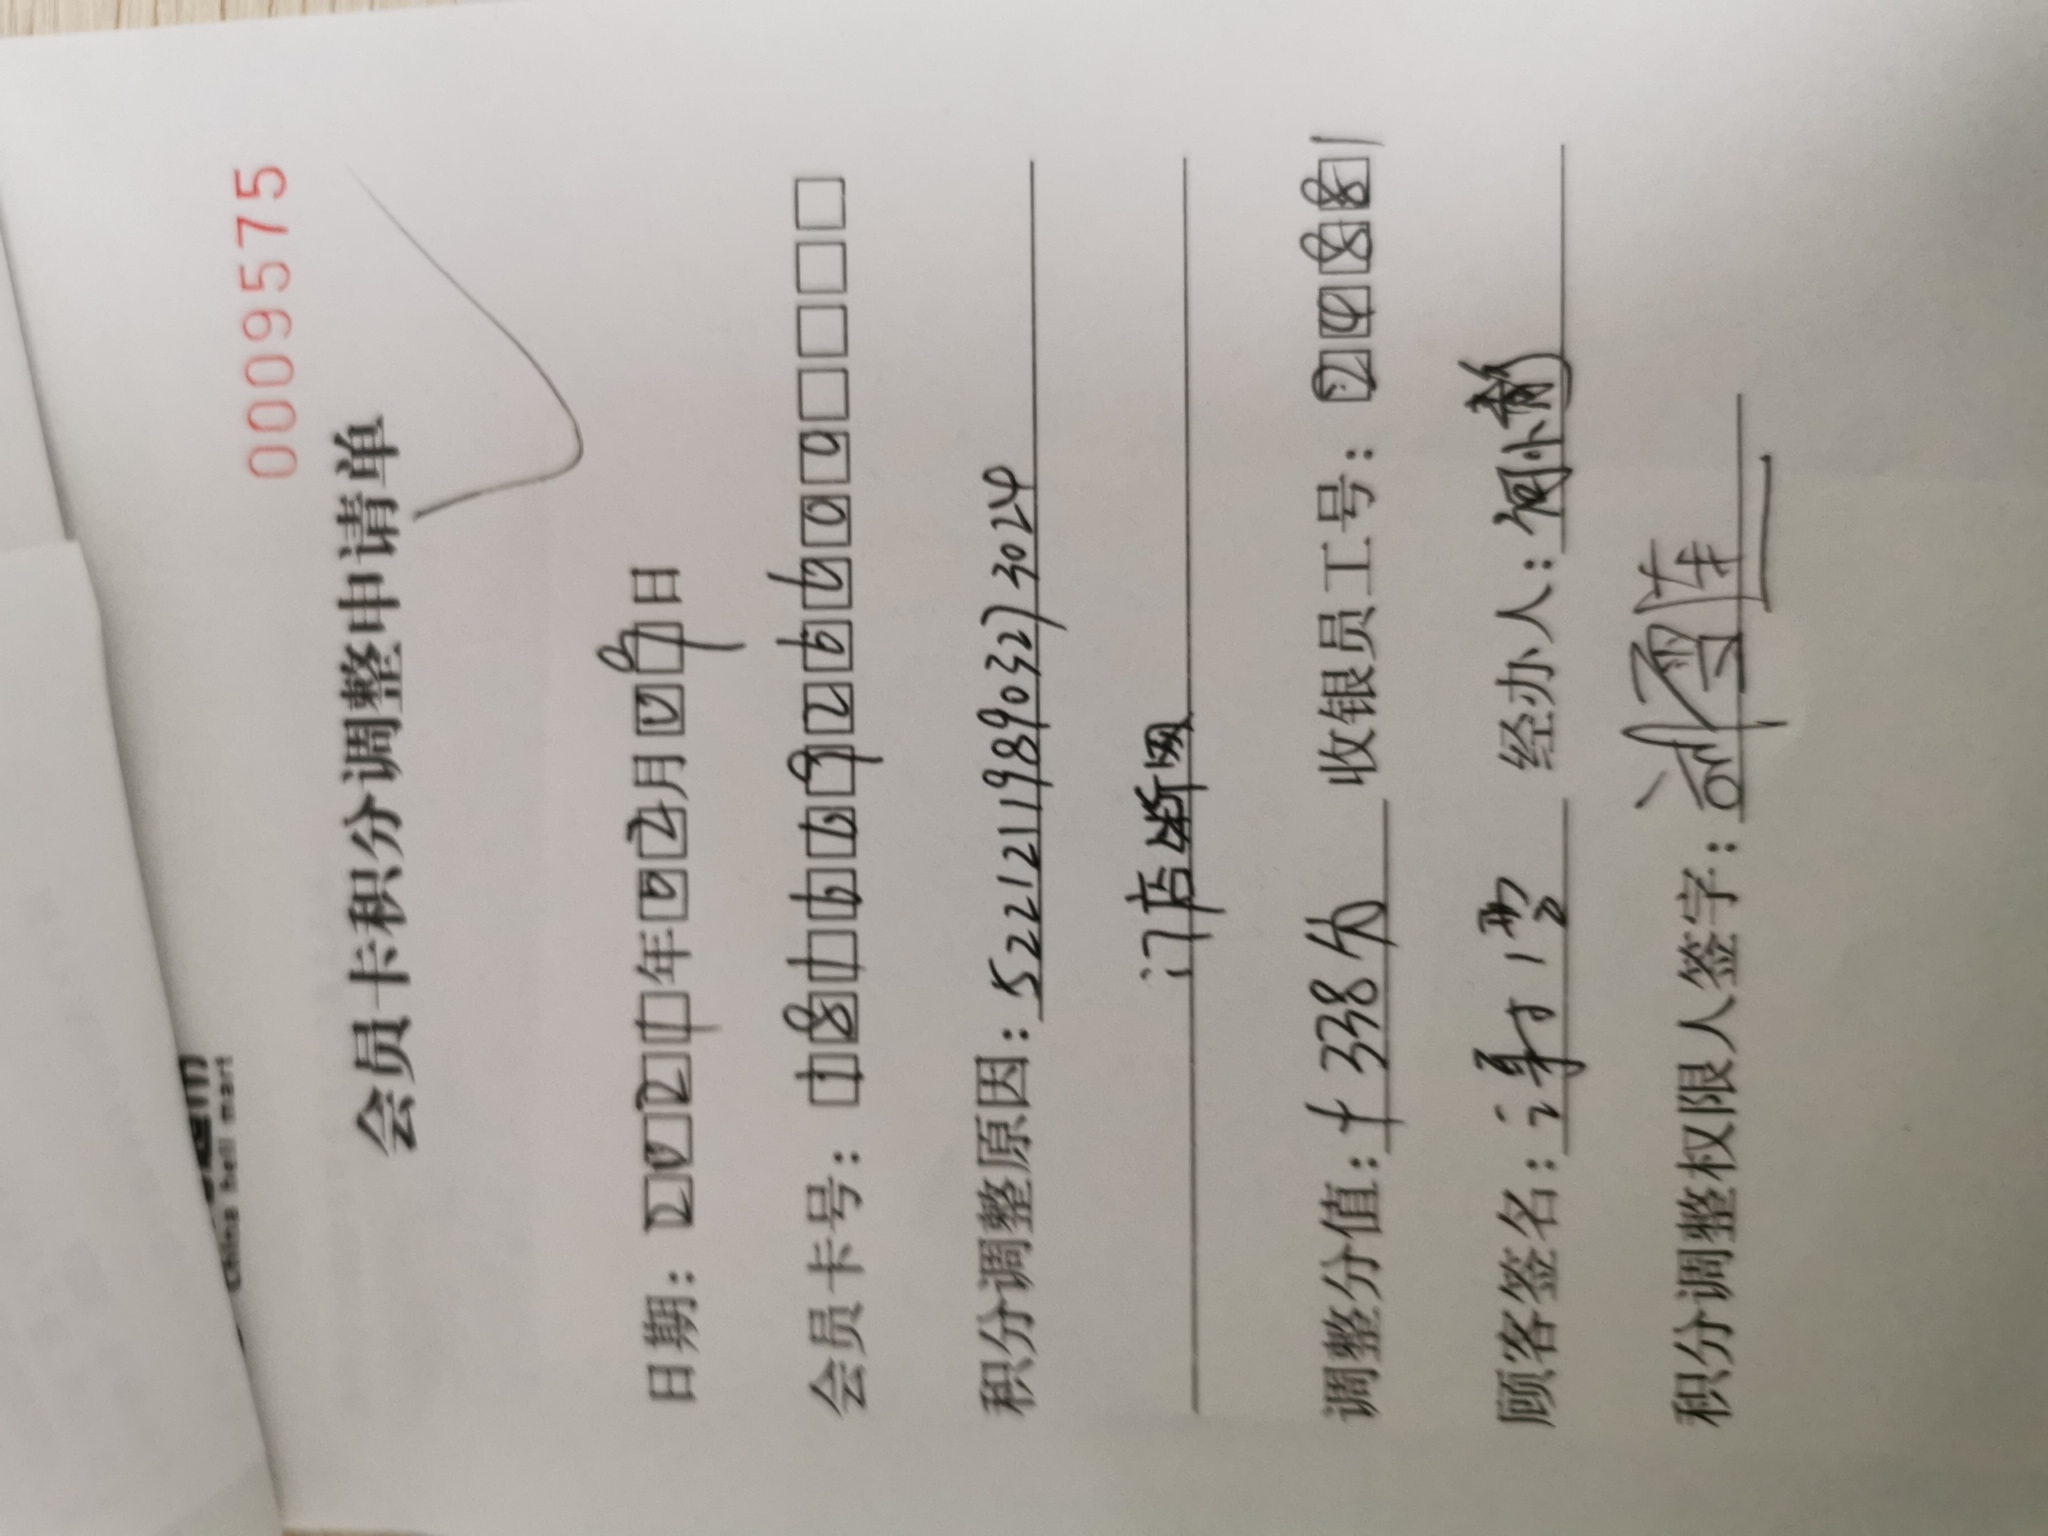 China hall mart
0009575
会员卡积分调整申请单
日期：2021年02月09日
会员卡号：18166926600
积分调整原因：522121198903273024
门店断网
调整分值：+338分 收银员工号：24881
顾客签名：谭 经办人：何小
积分调整权限人签字：